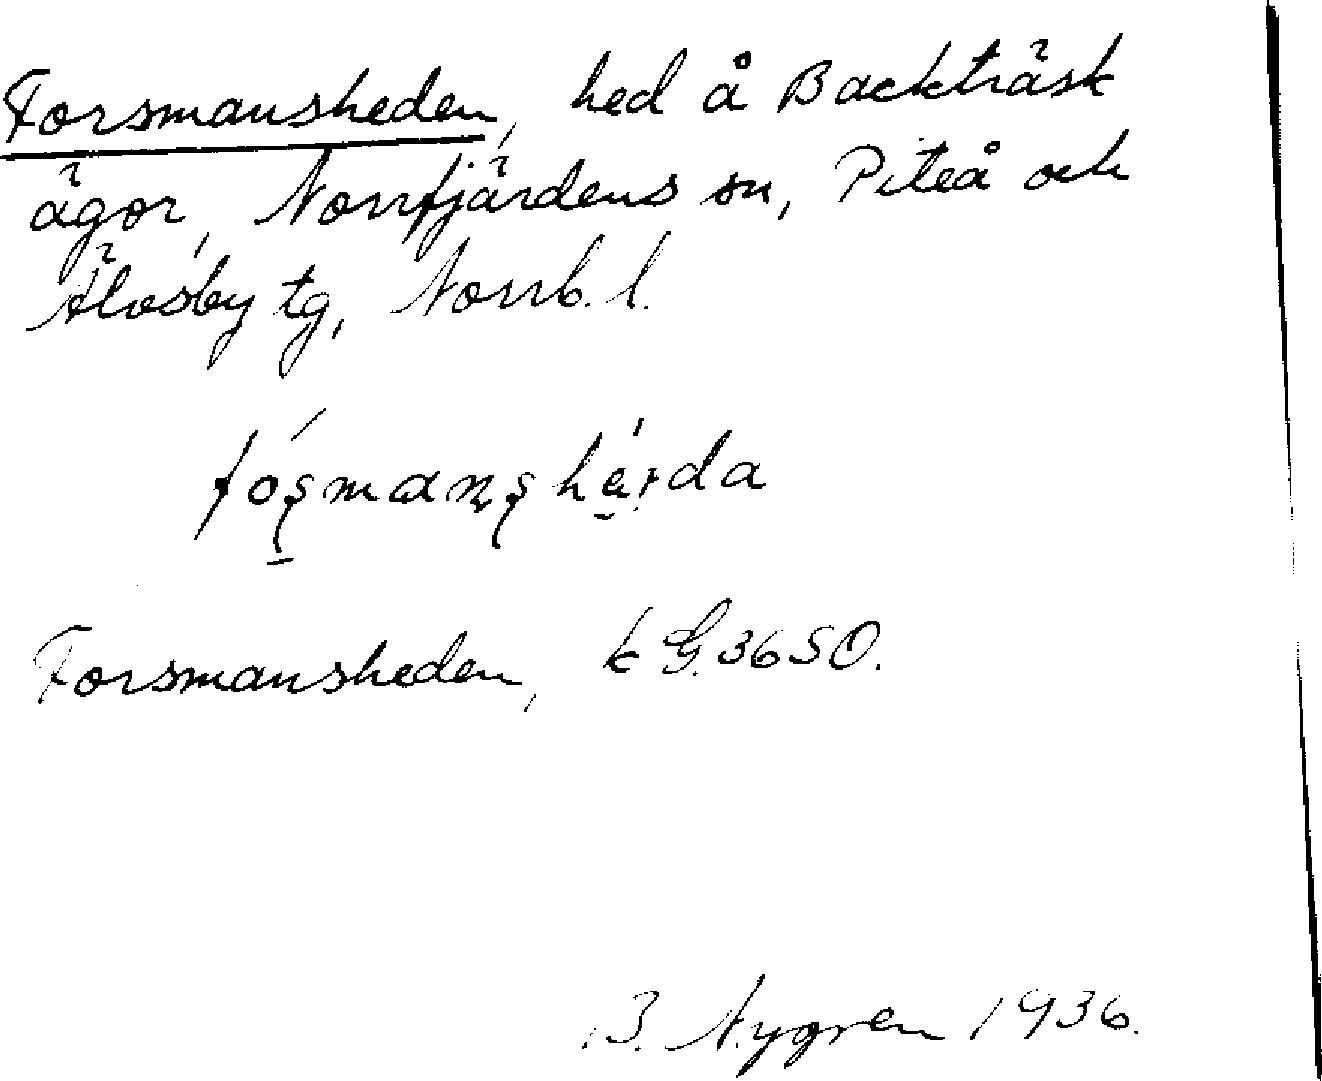 Forsmansheden, hed å Backträsk
ägor, Norrfjärdens sn, Piteå och
Älvsby tg, Norrb. l.
Forsmansheden, k G. 3650.
B. Nygren 1936.